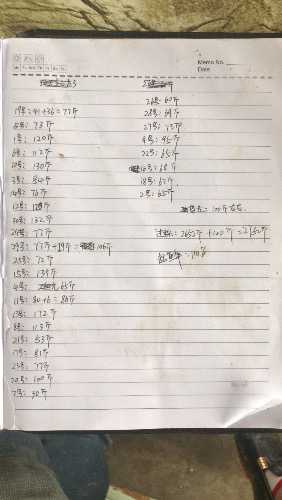 Memo No.
Date
19号: 41+36=77斤
5号: 73斤
1号: 120斤
6号: 112斤
10号: 130斤
3号: 80斤
14号: 76斤
12号:
30号: 132斤
24号: 77斤
29号: 77斤+29斤=106斤
25号: 72斤
15号: 139斤
4号: 65斤
11号: 80+6=86斤
13号: 172斤
8号: 113斤
21号: 53斤
17号: 81斤
23号: 77斤
20号: 100斤
7号: 90斤
26号: 60斤
28号: 64斤
27号: 73斤
9号: 46斤
22号: 65斤
16号: 68斤
18号: 67斤
2号: 65斤
100斤左右
2652斤+100斤=2750斤